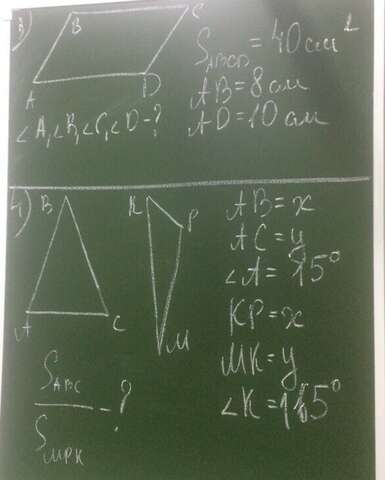 3) B C
A D
S_ABCD = 40 см²
AB = 8 см
AD = 10 см
∠A, ∠B, ∠C, ∠D - ?
4) B K P
A C M
AB = x
AC = y
∠A = 15°
KP = x
MK = y
∠K = 165°
S_ABC / S_MPK - ?